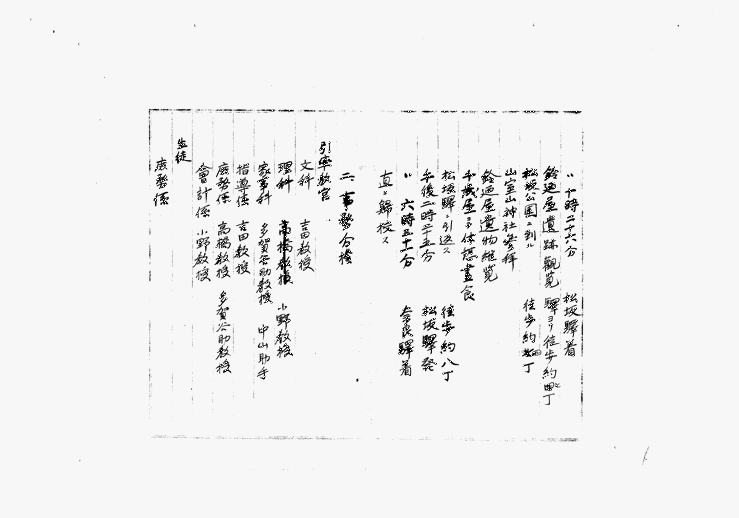 〃 十時二十六分 松坂驛着
鈴廼屋遺跡觀覧 驛ヨリ徒歩約 丁
松坂公園ニ到ル 徒歩約 丁
山室山神社參拝
鈴廼屋遺物縦覧
千歳屋ニテ休憩晝食
松坂驛ニ引返ス 徒歩約八丁
午後二時二十五分 松坂驛發
〃 六時五十一分 奈良驛着
直ニ歸校ス
二、事務分擔
引率教官
文科 吉田教授
理科 高橋教授 小野教授
家事科 多賀谷助教授 中山助手
指導係 吉田教授
庶務係 高橋教授 多賀谷助教授
會計係 小野教授
生徒
庶務係